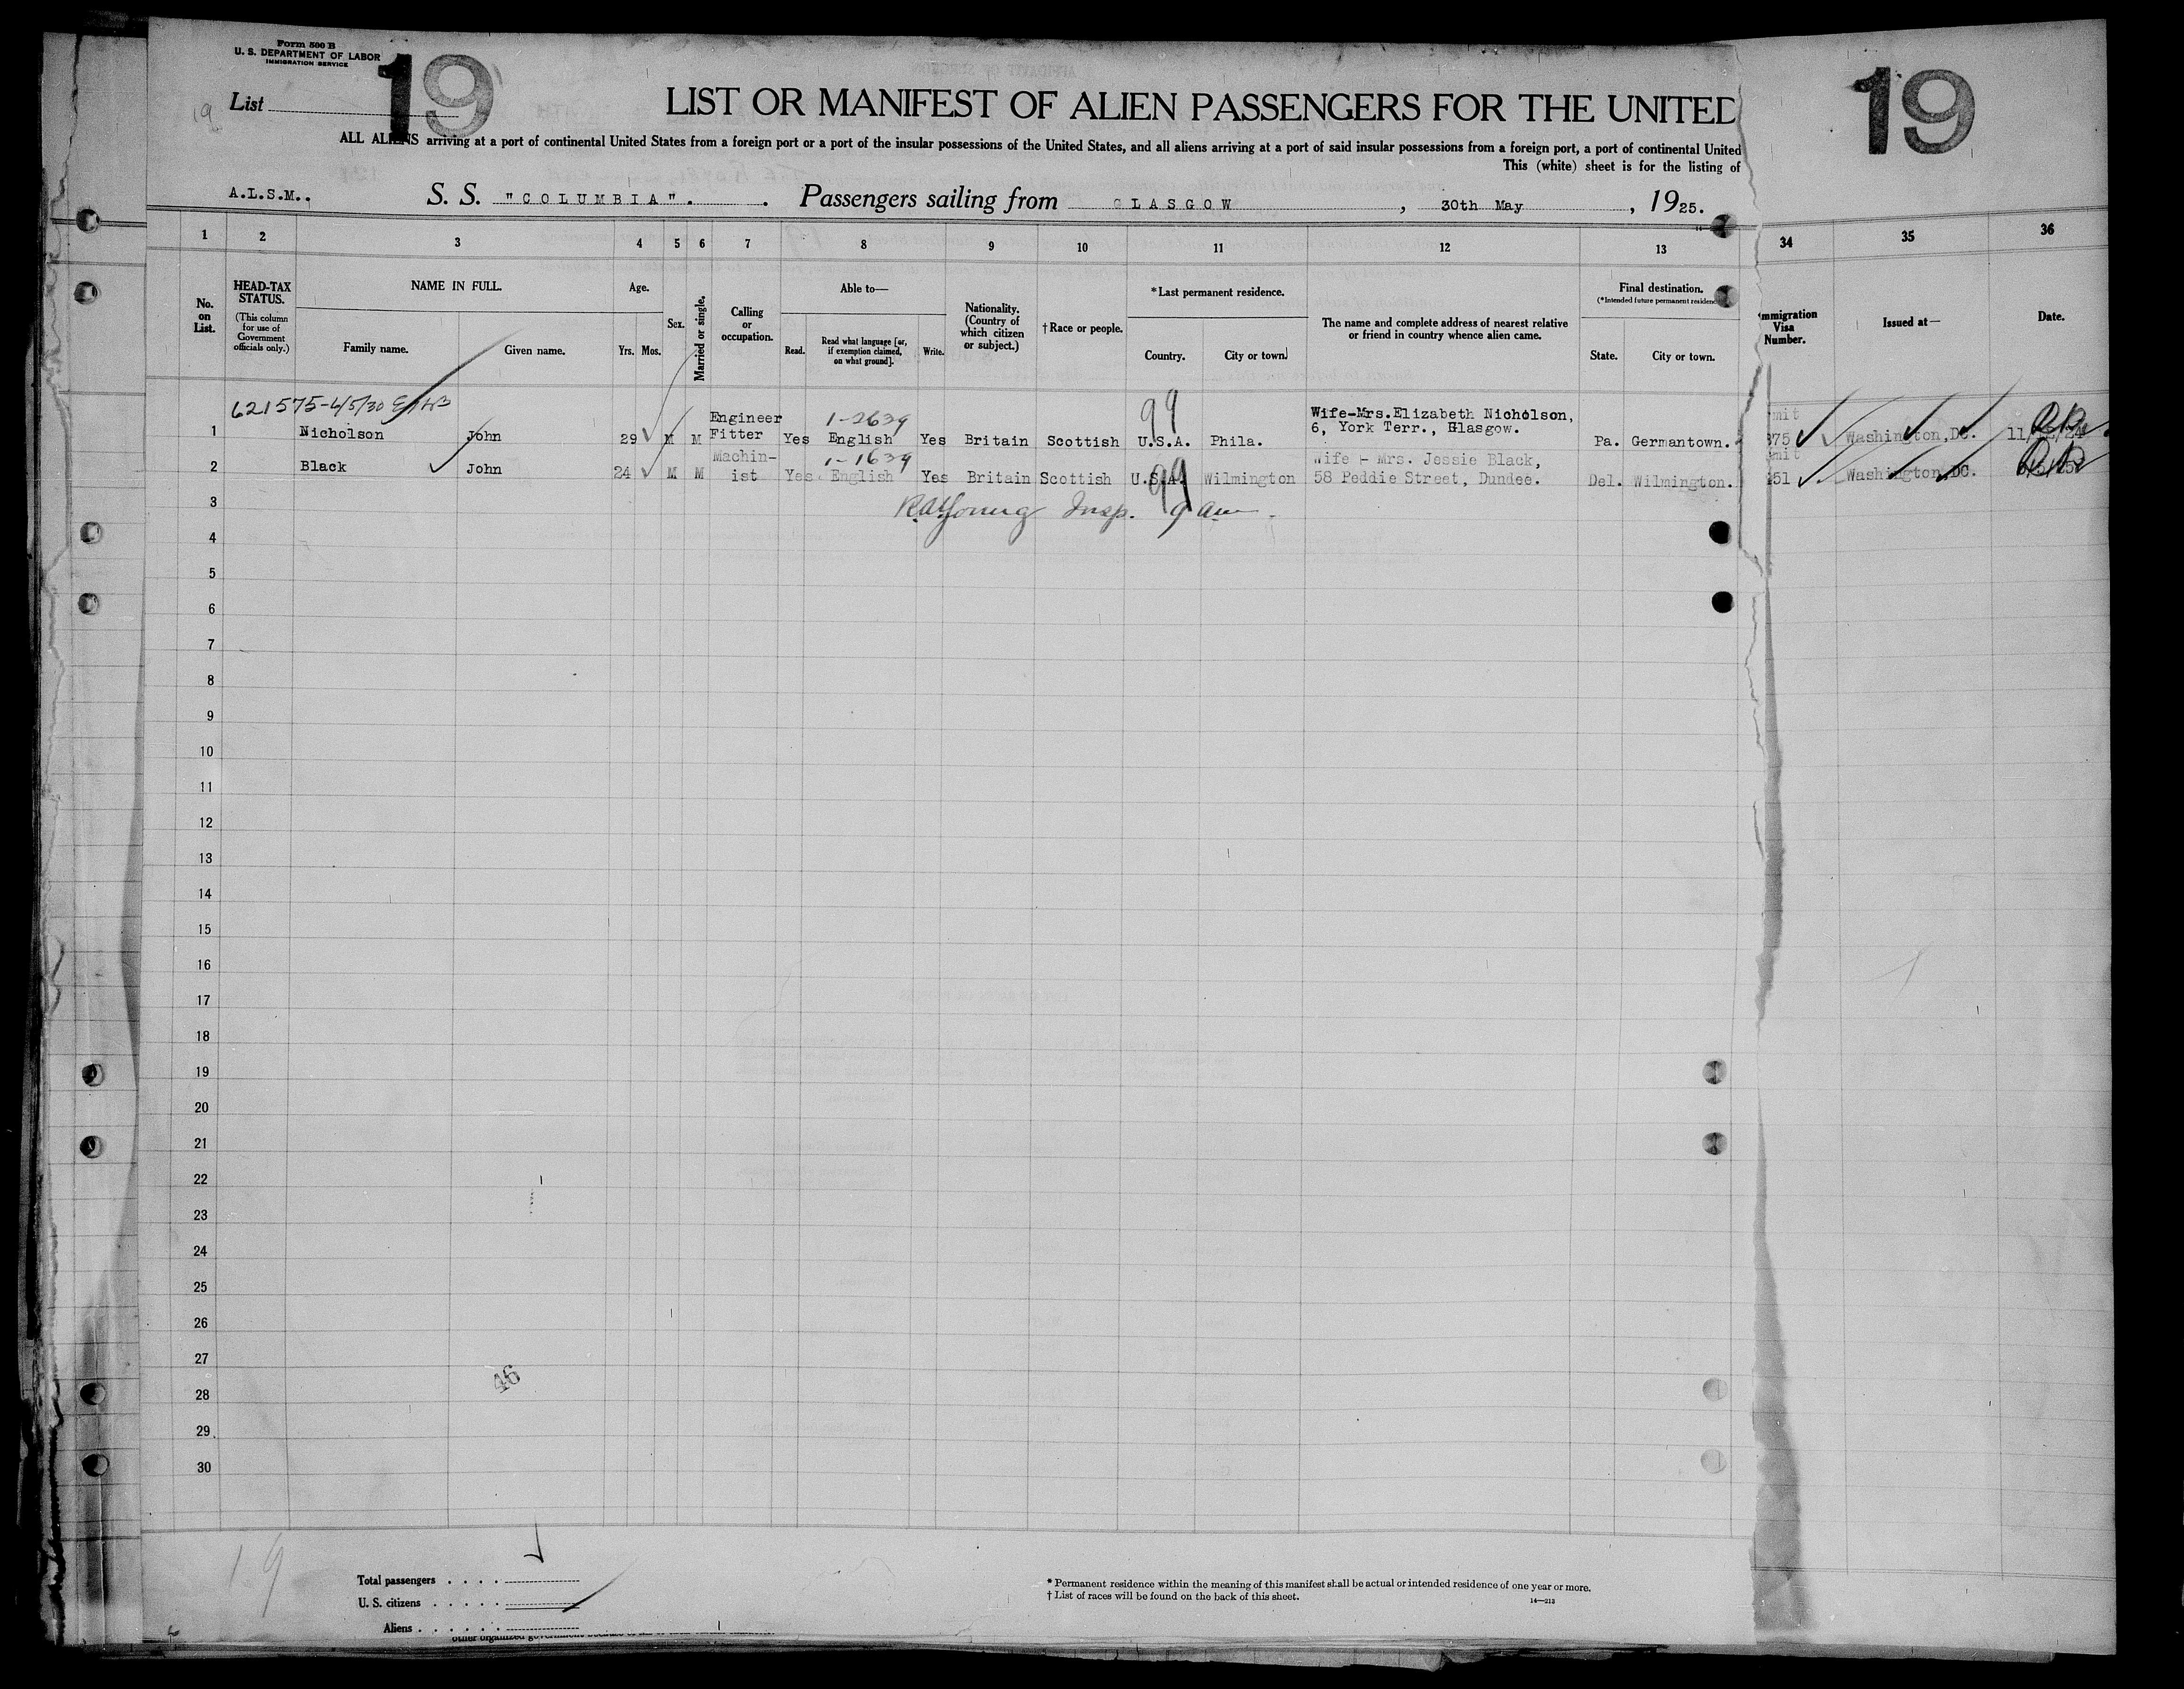 Form 500 B
U. S. DEPARTMENT OF LABOR
IMMIGRATION SERVICE
19
19
List
19
LIST OR MANIFEST OF ALIEN PASSENGERS FOR THE UNITED
ALL ALIENS arriving at a port of continental United States from a foreign port or a port of the insular possessions of the United States, and all aliens arriving at a port of said insular possessions from a foreign port, a port of continental United
This (white) sheet is for the listing of
A.L.S.M..
S. S. "COLUMBIA". Passengers sailing from GLASGOW, 30th May, 1925.
1 2 3 4 5 6 7 8 9 10 11 12 13 34 35 36
No. on List.
HEAD-TAX STATUS. (This column for use of Government officials only.)
NAME IN FULL.
Family name. Given name.
Age.
Yrs. Mos.
Sex.
Married or single.
Calling or occupation.
Able to—
Read. Read what language [or, if exemption claimed, on what ground]. Write.
Nationality. (Country of which citizen or subject.)
† Race or people.
* Last permanent residence.
Country. City or town
The name and complete address of nearest relative or friend in country whence alien came.
Final destination.
(*Intended future permanent residence
State. City or town.
mmigration Visa Number.
Issued at—
Date.
621575-4/5/30
1-2639
99
mit
1 Nicholson John 29 M M Engineer Fitter Yes English Yes Britain Scottish U.S.A. Phila. Wife-Mrs.Elizabeth Nicholson, 6, York Terr., Glasgow. Pa. Germantown. 375 Washington,DC.
1-1639
99
mit
2 Black John 24 M M Machin-ist Yes English Yes Britain Scottish U.S.A. Wilmington Wife - Mrs. Jessie Black, 58 Peddie Street, Dundee. Del. Wilmington. 251 Washington,DC.
3
Young Insp. 9 am
4
5
6
7
8
9
10
11
12
13
14
15
16
17
18
19
20
21
22
23
24
25
26
27
46
28
29
30
19
Total passengers
U. S. citizens
Aliens
* Permanent residence within the meaning of this manifest shall be actual or intended residence of one year or more.
† List of races will be found on the back of this sheet.
14—213